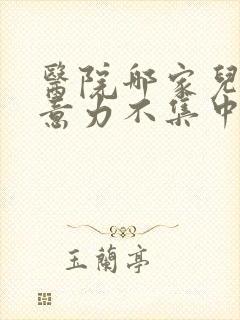 醫院那家兒
意力不集中
玉蘭亭